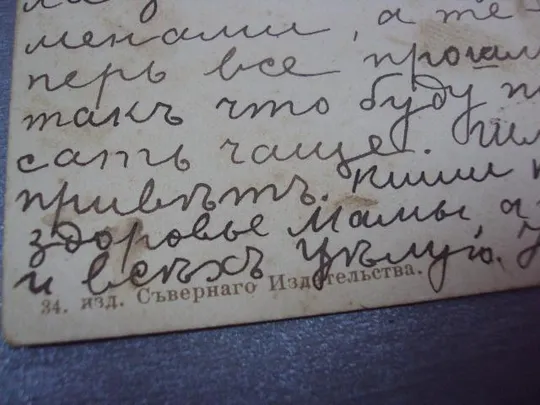 менами, а те
перь все
такъ что буду
сать чаще.
привѣтъ.
здоровье мамы, а
и всѣхъ цѣлую.
34. изд. Сѣвернаго Издательства.